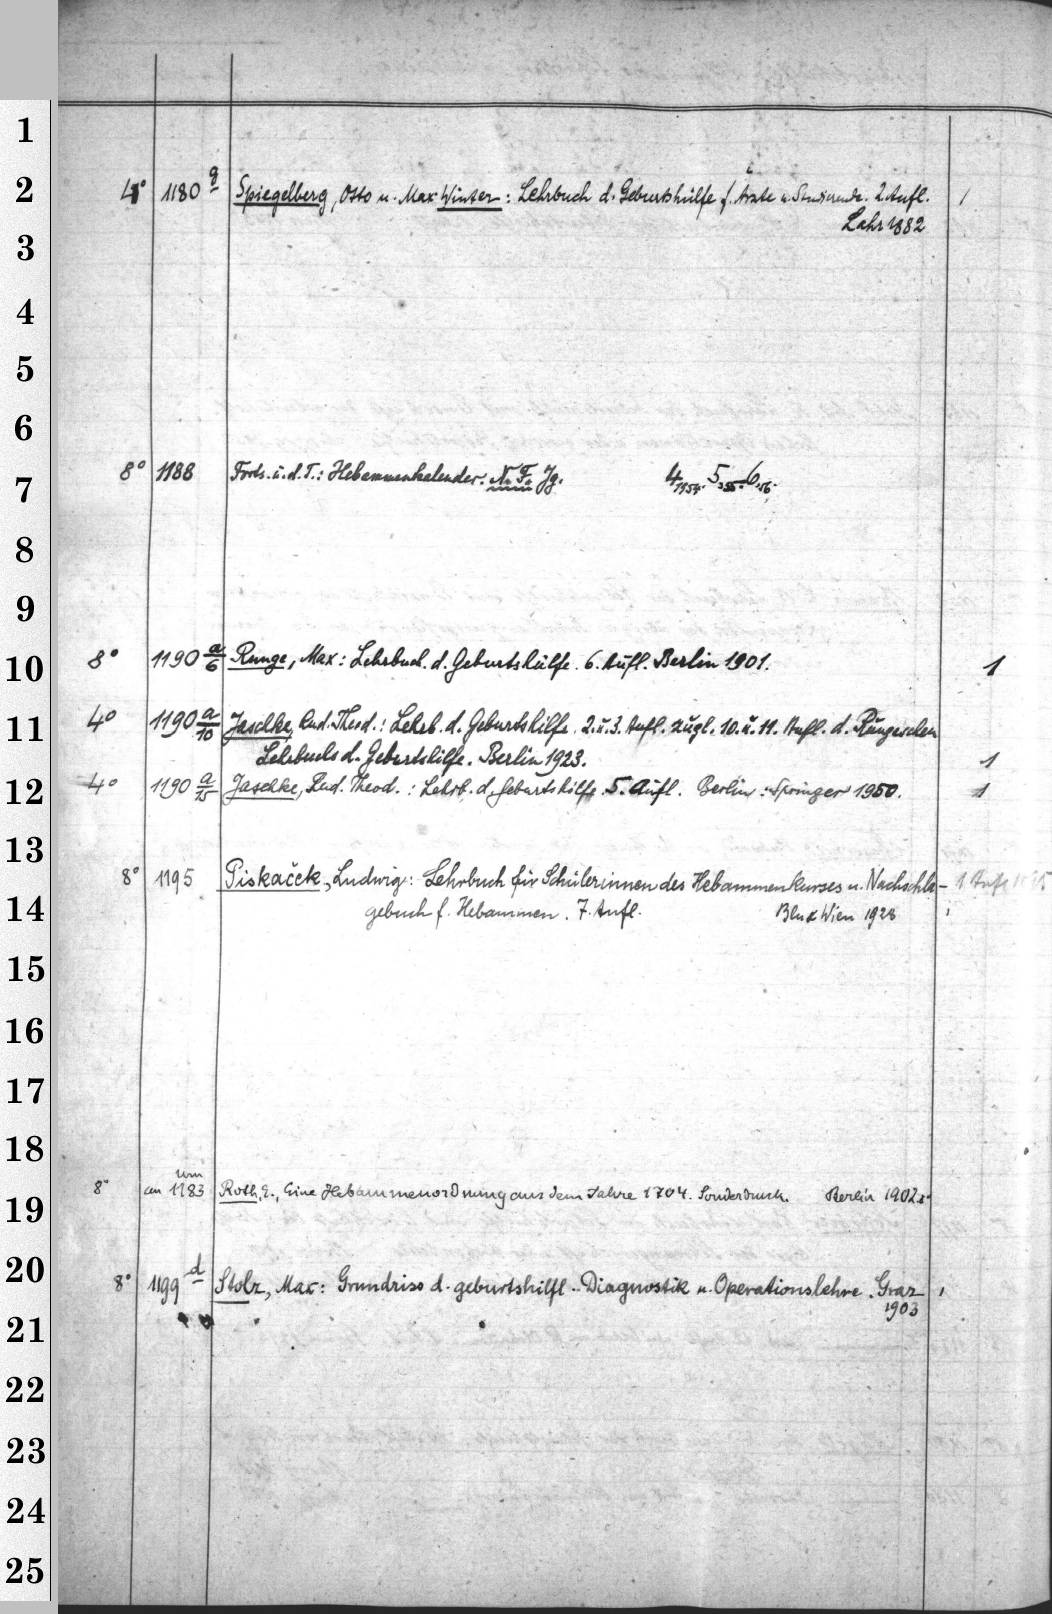 1
2
4° 1180 g Spiegelberg, Otto u. Max Winter: Lehrbuch d. Geburtshülfe f. Ärzte u. Studirende. 2. Aufl.
Lahr 1882
3
4
5
6
7
8° 1188 Forts. u. d. T.: Hebammenkalender. N. F. Jg. 4.1954. 5.55.-6.56.
8
9
10
8° 1190 a/6 Runge, Max: Lehrbuch d. Geburtshülfe. 6. Aufl. Berlin 1901. 1
11
4° 1190 a/10 Jaschke, Rud. Theod.: Lehrb. d. Geburtshilfe. 2. u. 3. Aufl. zugl. 10. u. 11. Aufl. d. Rungeschen
Lehrbuchs d. Geburtshilfe. Berlin 1923. 1
12
4° 1190 a/15 Jaschke, Rud. Theod.: Lehrb. d. Geburtshilfe. 5. Aufl. Berlin: Springer 1950. 1
13
8° 1195 Piskaček, Ludwig: Lehrbuch für Schülerinnen des Hebammenkurses u. Nachschla-
14
gebuch f. Hebammen. 7. Aufl. Bln & Wien 1928
15
16
17
18
um
19
8° an 1183 Roth, E., Eine Hebammenordnung aus dem Jahre 1704. Sonderdruck. Berlin 1902.
20
8° 1199 d Stolz, Max: Grundriss d. geburtshilfl. Diagnostik u. Operationslehre. Graz
1903
21
22
23
24
25